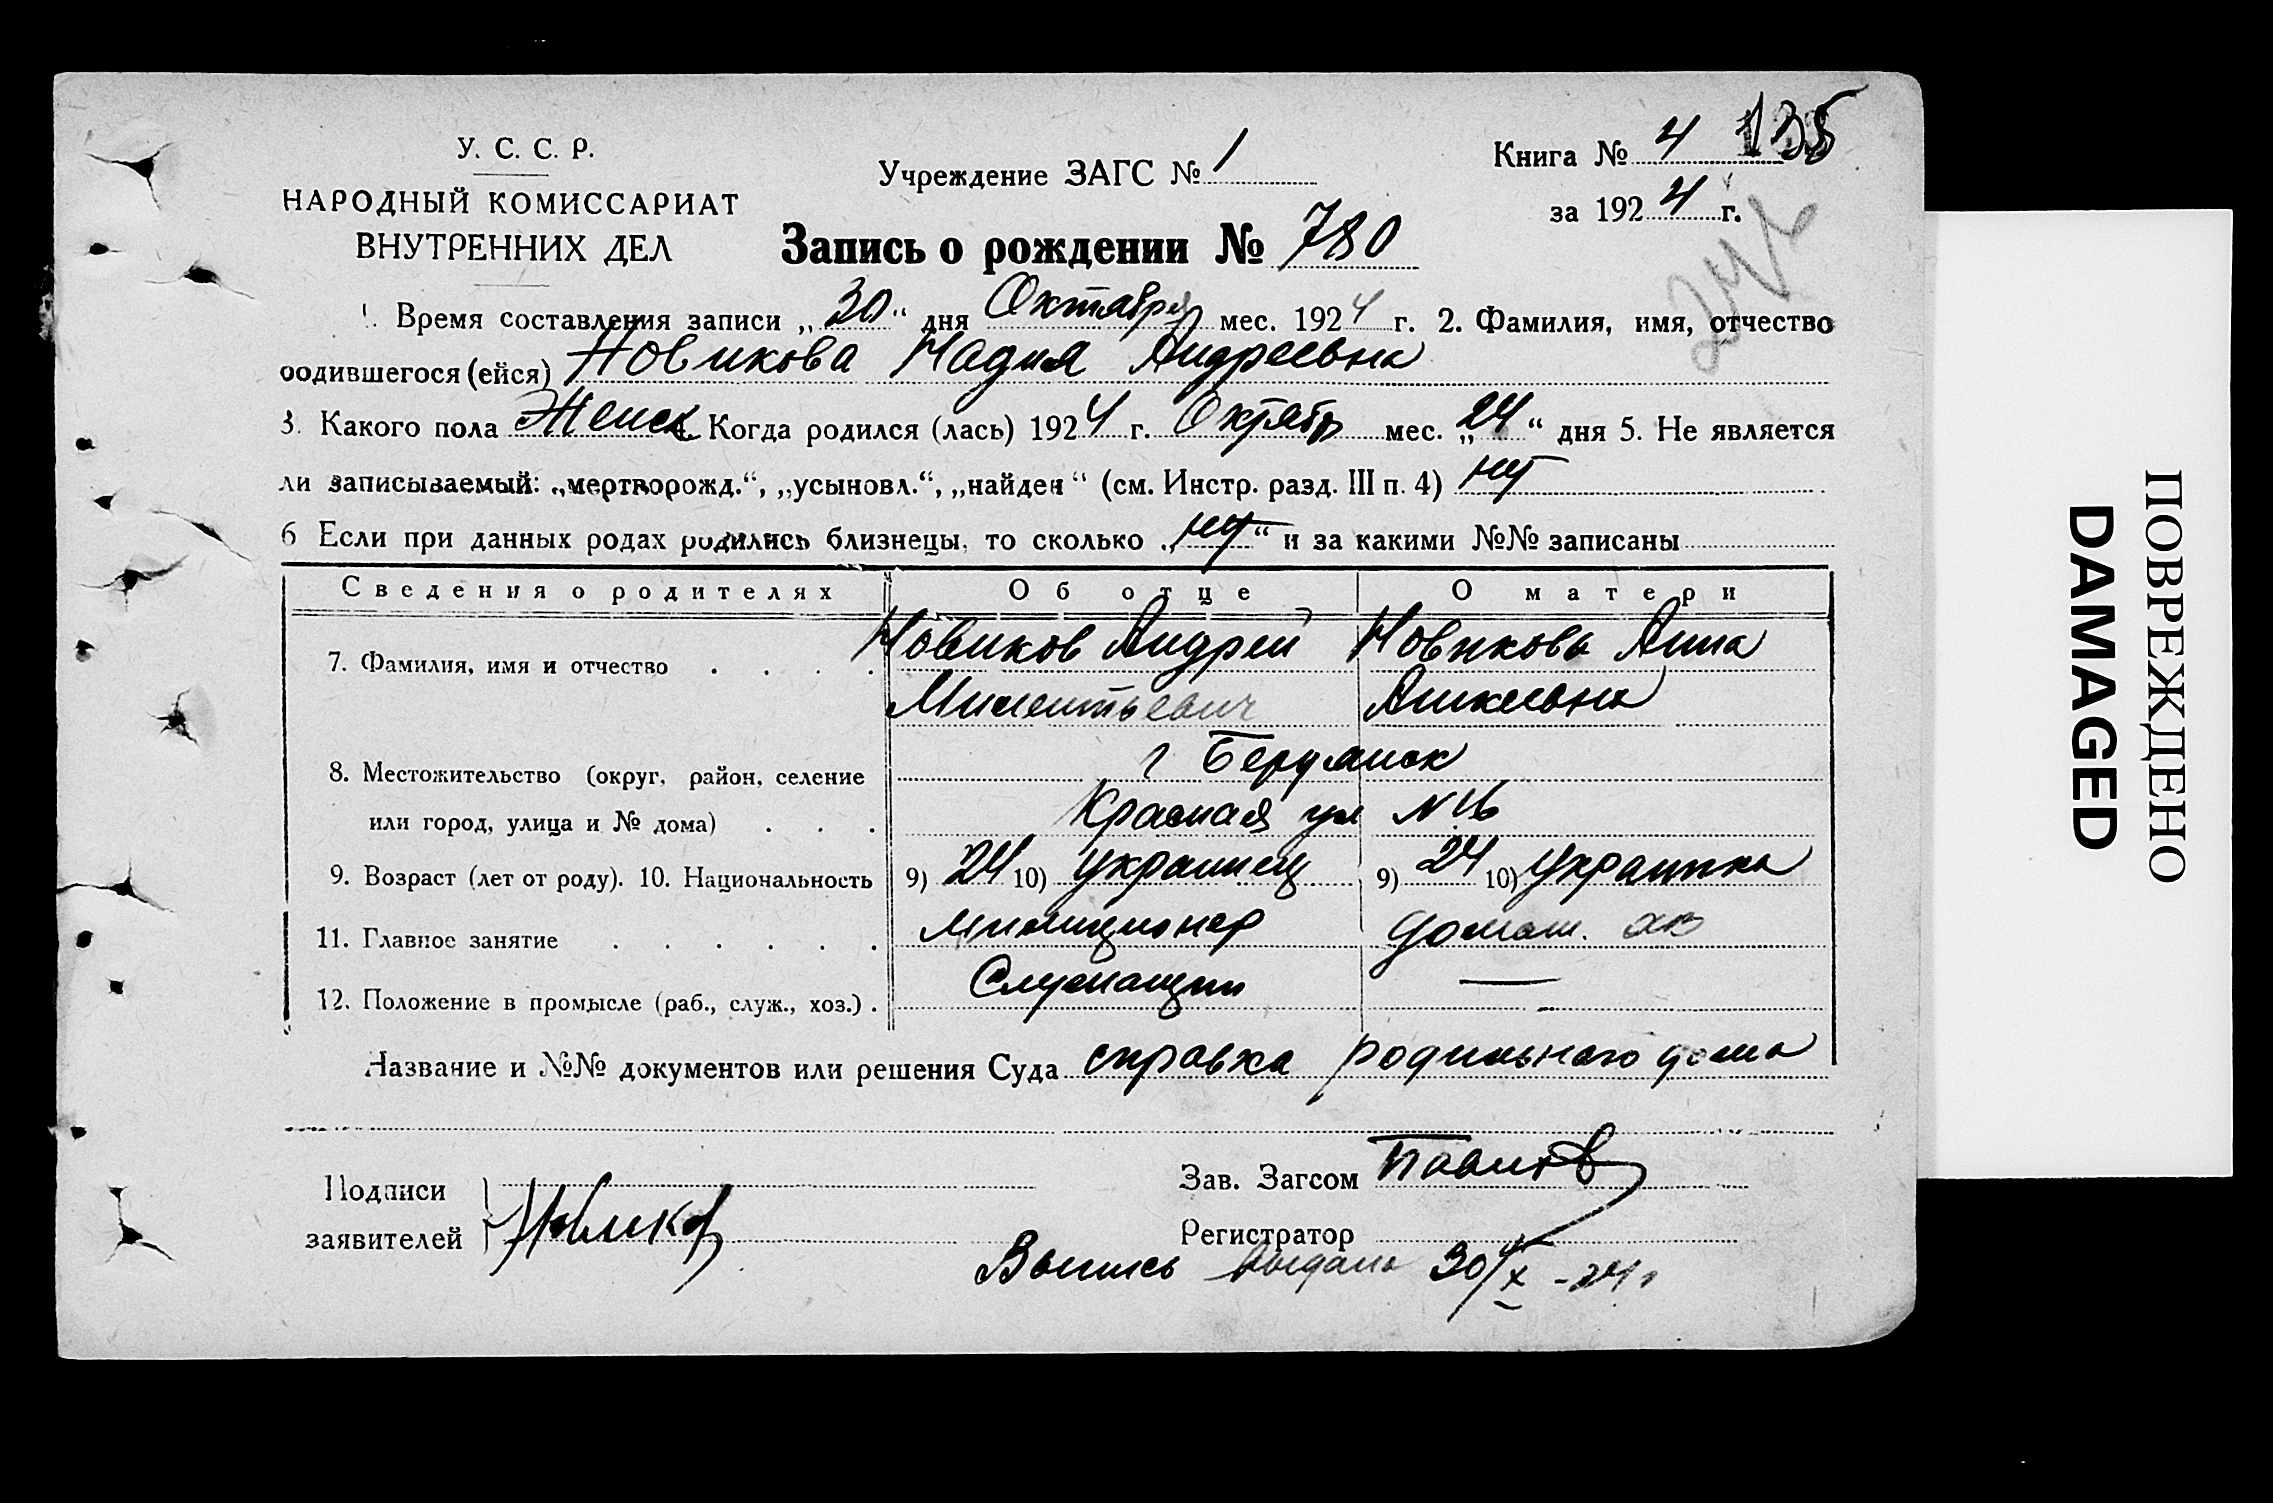 У. С. С. Р.
НАРОДНЫЙ КОМИССАРИАТ
ВНУТРЕННИХ ДЕЛ
Учреждение ЗАГС № 1
Книга № 4 135
за 1924 г.
Запись о рождении № 780
1. Время составления записи „30“ дня Октября мес. 1924 г. 2. Фамилия, имя, отчество
родившегося (ейся) Новикова Надия Андреевна
3. Какого пола Женск 4. Когда родился (лась) 1924 г. Октябр мес. „24“ дня 5. Не является
ли записываемый: „мертворожд.“, „усыновл.“, „найден“ (см. Инстр. разд. III п. 4) нет
6 Если при данных родах родились близнецы, то сколько „нет“ и за какими №№ записаны
Сведения о родителях Об отце О матери
7. Фамилия, имя и отчество Новиков Андрей Новикова Анна
8. Местожительство (округ, район, селение г Бердянск
или город, улица и № дома) Красная ул №
9. Возраст (лет от роду). 10. Национальность 9) 24 10) украинец 9) 24 10) украинка
11. Главное занятие милиционер домаш. хоз
12. Положение в промысле (раб., служ., хоз.) Служащий —
Название и №№ документов или решения Суда справка родильного дома
Подписи
заявителей Новиков
Зав. Загсом
Регистратор
Выпись выдана 30/X-24г
ПОВРЕЖДЕНО
DAMAGED